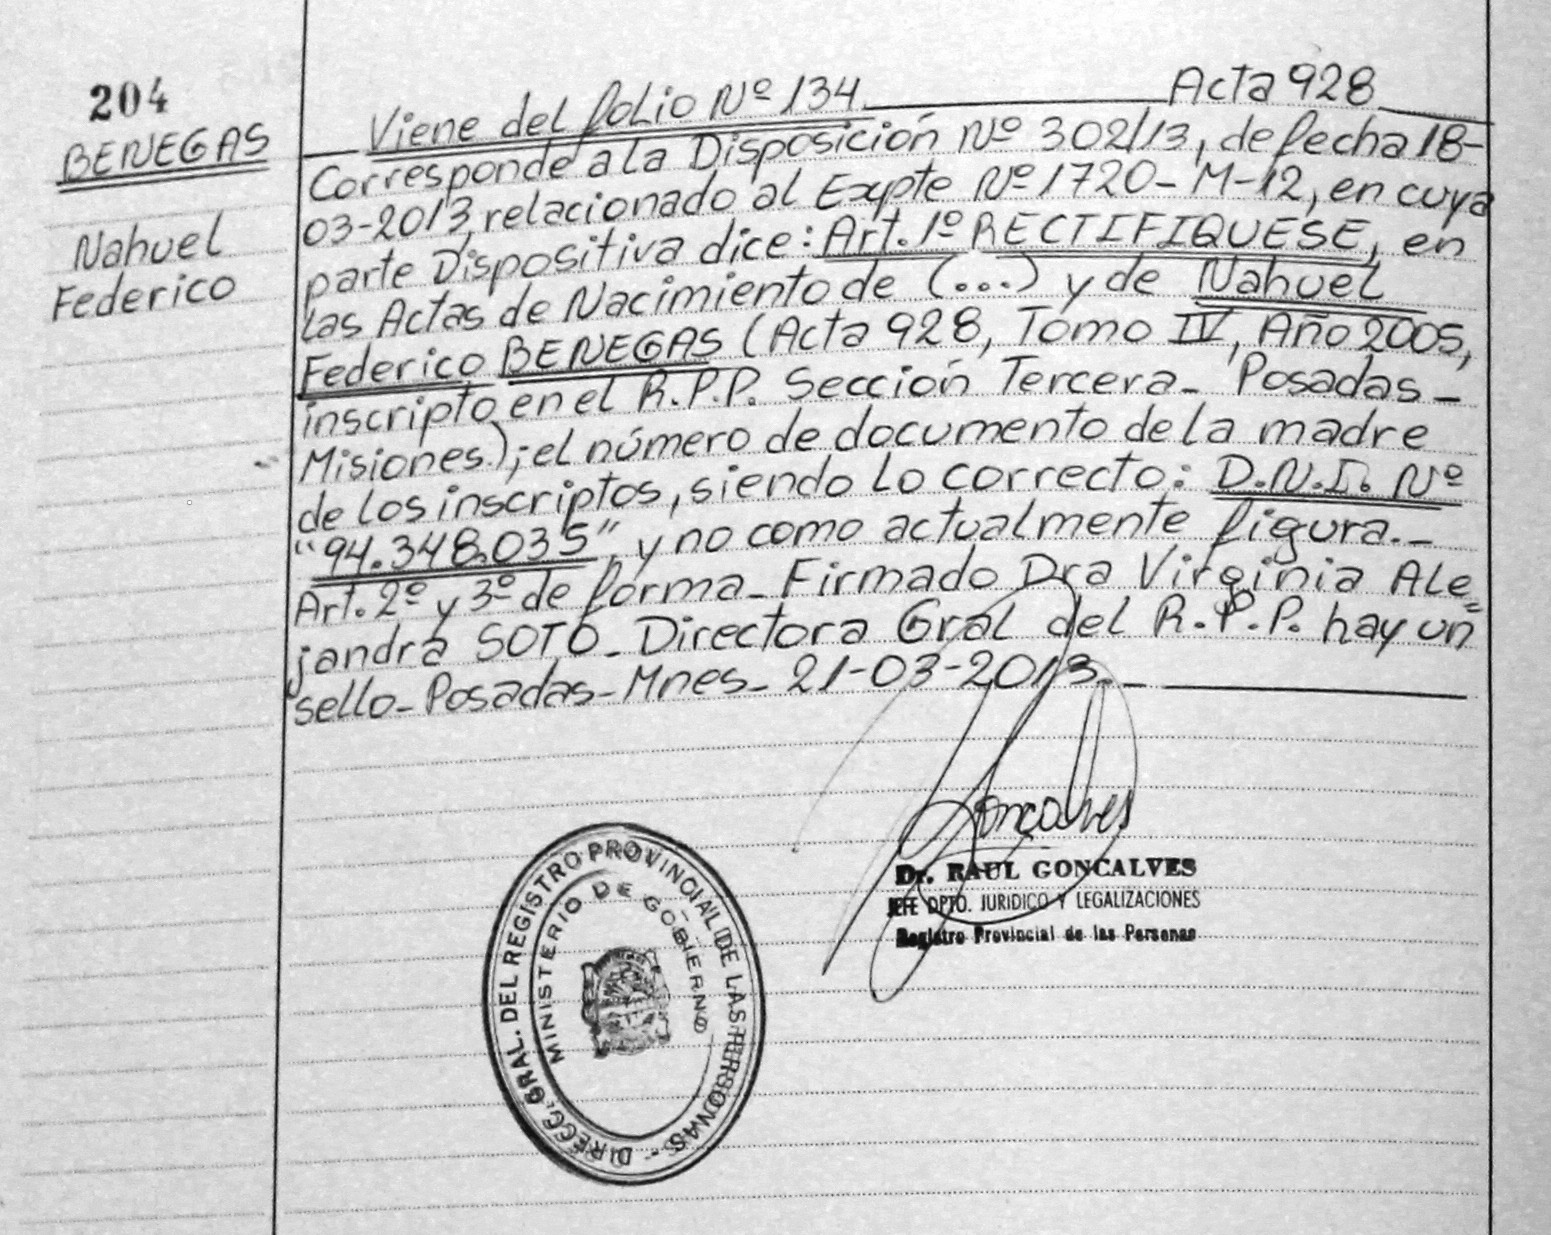 204
BENEGAS
Nahuel
Federico
Viene del folio Nº 134 Acta 928
Corresponde a la Disposición Nº 302/13, de fecha 18-
03-2013, relacionado al Expte Nº 1720-M-12, en cuya
parte Dispositiva dice: Art. 1º RECTIFIQUESE, en
las Actas de Nacimiento de (...) y de Nahuel
Federico BENEGAS (Acta 928, Tomo IV, Año 2005,
inscripto en el R.P.P. Sección Tercera - Posadas -
Misiones); el número de documento de la madre
de los inscriptos, siendo lo correcto: D.N.I. Nº
"94.348.035", y no como actualmente figura.-
Art. 2º y 3º de forma - Firmado Dra Virginia Ale=
jandra SOTO - Directora Gral del R.P.P. hay un
sello - Posadas - Mnes - 21-03-2013.-
Goncalves
Dr. RAUL GONCALVES
JEFE DPTO. JURIDICO Y LEGALIZACIONES
Registro Provincial de las Personas
DIRECC. GRAL. DEL REGISTRO PROVINCIAL DE LAS PERSONAS -
MINISTERIO DE GOBIERNO